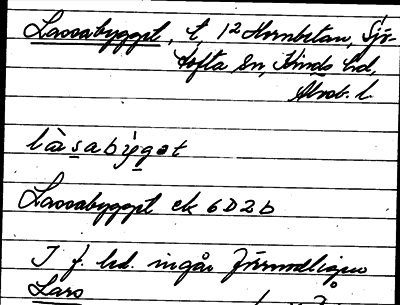 Lassabygget, t, 12 Hornbetan, Sjö-
tofta sn, Kinds hd,
Älvsb. l.
làsabỳgət
Lassabygget ek 6D2b
I f. led. ingår förmodligen
Lars